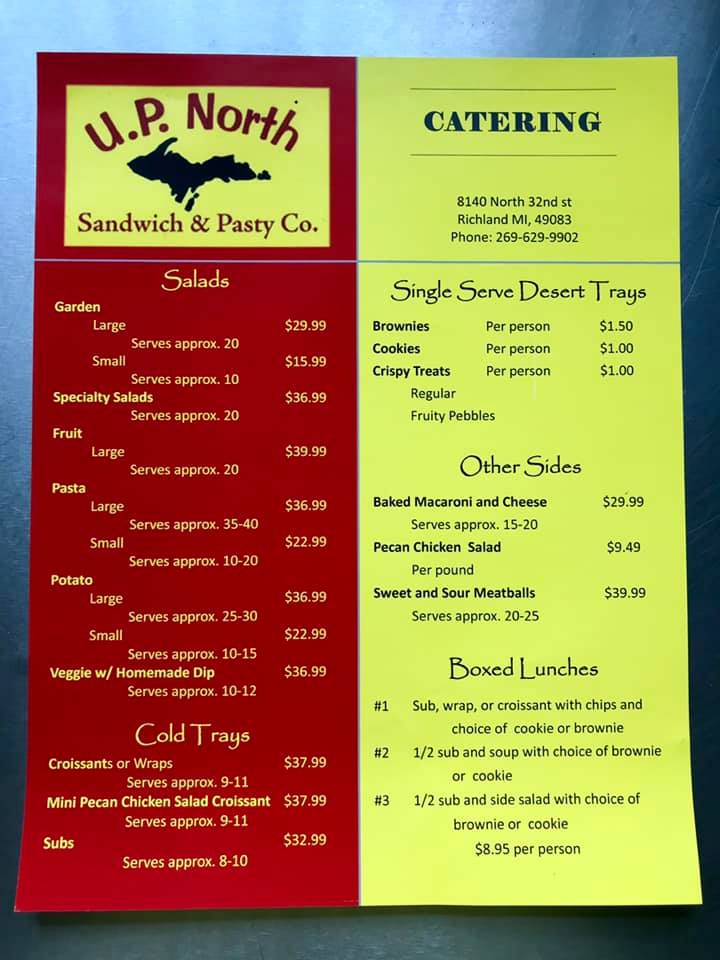 U.P. North
Sandwich & Pasty Co.
CATERING
8140 North 32nd st
Richland MI, 49083
Phone: 269-629-9902
Salads
Garden
Large $29.99
Serves approx. 20
Small $15.99
Serves approx. 10
Specialty Salads $36.99
Serves approx. 20
Fruit
Large $39.99
Serves approx. 20
Pasta
Large $36.99
Serves approx. 35-40
Small $22.99
Serves approx. 10-20
Potato
Large $36.99
Serves approx. 25-30
Small $22.99
Serves approx. 10-15
Veggie w/ Homemade Dip $36.99
Serves approx. 10-12
Cold Trays
Croissants or Wraps $37.99
Serves approx. 9-11
Mini Pecan Chicken Salad Croissant $37.99
Serves approx. 9-11
Subs $32.99
Serves approx. 8-10
Single Serve Desert Trays
Brownies Per person $1.50
Cookies Per person $1.00
Crispy Treats Per person $1.00
Regular
Fruity Pebbles
Other Sides
Baked Macaroni and Cheese $29.99
Serves approx. 15-20
Pecan Chicken Salad $9.49
Per pound
Sweet and Sour Meatballs $39.99
Serves approx. 20-25
Boxed Lunches
#1 Sub, wrap, or croissant with chips and
choice of cookie or brownie
#2 1/2 sub and soup with choice of brownie
or cookie
#3 1/2 sub and side salad with choice of
brownie or cookie
$8.95 per person